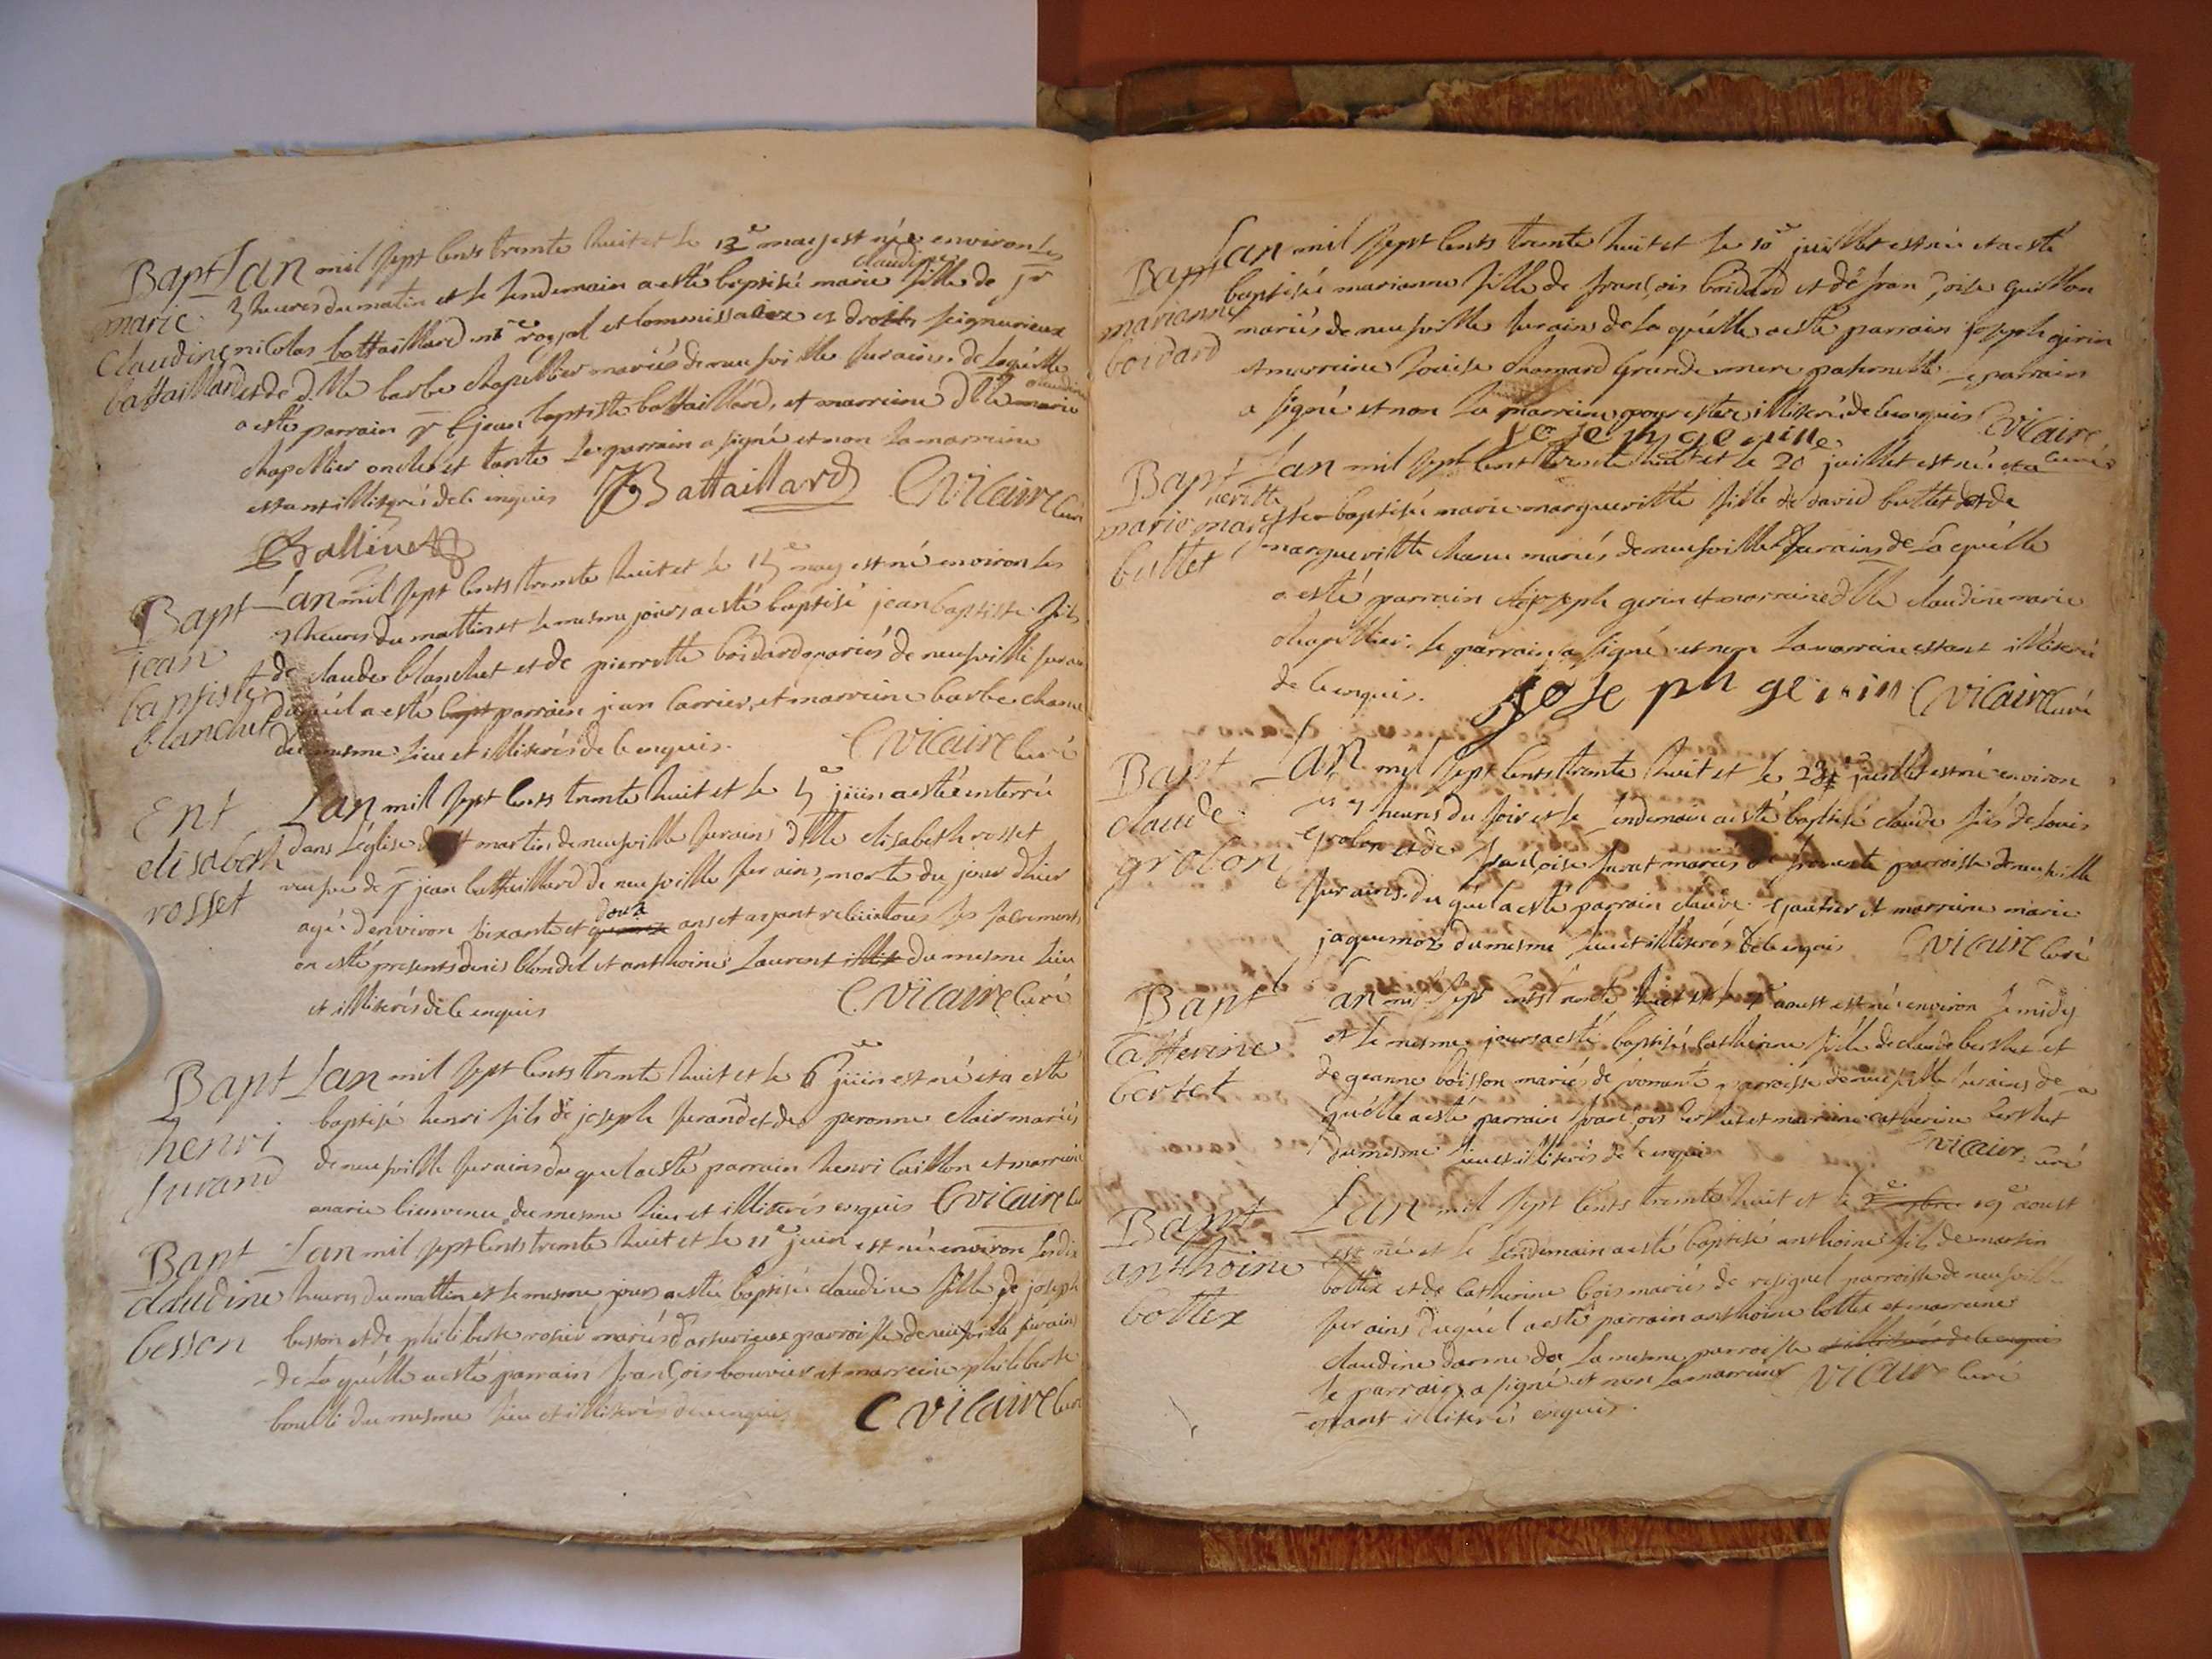 Bapt
marie
claudine
battaillard
Lan mil sept cents trante huit et le 12e may est née environ les
3 heures du matin et le lendemain a esté baptisée marie claudine fille de sr
nicolas battaillard nre royal et commissaire et droits seigneuriaux
et de dlle barbe chapellier mariés de neufville sur ains de laquelle
a esté parrain sr jean baptiste battaillard, et marreine dlle marie claudine
chapellier oncle et tante le parrain a signé et non la marreine
estant illiterée de ce enquis JBattaillard C vicaire curé
Ballivet
Bapt
jean
baptiste
blanchet
Lan mil sept cents trante huit et le 15e may est né environ les
heures du mattin et le mesme jour a esté baptisé jean baptiste fils
de claude blanchet et de pierrette boidard mariés de neufville sur ains
duquel a esté bapt parrain jean carrier, et marreine barbe charne
du mesme lieu et illiterés de ce enquis. C vicaire curé
Ent
elisabeth
rosset
Lan mil sept cents trante huit et le 5e jüin a esté enterrée
dans l'église de st martin de neufville sur ains dlle elisabeth rosset
veufve de sr jean battaillard de neufville sur ains, morte du jour d'hier
agée d'environ sixante et douza ans et ayant reçeu tous ses sacrements
on esté presents denis blondel et anthoine laurent du mesme lieu
et illiterés de ce enquis C vicaire curé
Bapt
henri
jurand
Lan mil sept cents trante huit et le 6e jüin est né et a esté
baptisé henri fils de joseph jurand et de peronne clair mariés
de neufville sur ains du quel a esté parrain henri caillon et marreine
marie bienvenu du mesme lieu et illiterés enquis C vicaire cu
Bapt
claudine
besson
Lan mil sept cents trante huit et le 11e juin est née environ les dix
heures du mattin et le mesme jour a esté baptisée claudine fille de joseph
besson et de philiberte rosier mariés d'arturieux parroisse de neufville sur ains
de laquelle a esté parrain françois bouvier et marreine philiberte
du mesme lieu et illiterés de ce enquis C vicaire curé
Bapt
marianne
boidard
Lan mil sept cents trante huit et le 10e juillet est née et a esté
baptisée marianne fille de françois boidard et de françoise guillon
mariés de neufville sur ains de laquelle a esté parrain joseph girin
et marreine louise chamard grande mere paternelle le parrain
a signé et non la marreine pour ester illiterée de ce enquis C vicaire
curé
Bapt
marie margueritte
buttet
Lan mil sept cent trente huit et le 20e juillet est née et a
esté baptisée marie marguerittte fille de david buttet et de
marguerittte charne mariés de neufville sur ains de laquelle
a esté parrain joseph girin et marreine dlle claudine marie
chapellier. le parrain a signé et non la marreine estant illiterée
de ce enquis. joseph gerin C vicaire curé
Bapt
claude
grolon
Lan mil sept cents trante huit et le 23e juillet est né environ
les heures du soir et le lendemain a esté baptisé claude fils de louis
grolon et de françoise juvat mariés de fromente parroisse de neufville
sur ains. du quel a esté parrain claude gautier et marreine marie
jaquemoz du mesme lieu et illiterés de ce enquis C vicaire curé
Bapt
Catterine
bertet
Lan mil sept cents trante huit et le aoust est née environ le midy
et le mesme jour a esté baptisée catherine fille de claude berthet et
de jeanne boisson mariés de fromente parroisse de neufville sur ains de la
quelle a esté parrain françois berthet et marreine catherine berthet
du mesme lieu et illiterés de ce enquis C vicaire curé
Bapt
anthoine
bottex
Lan mil sept cents trante huit et le 19e aoust
est né et le lendemain a esté baptisé anthoine fils de martin
bottex et de catherine bois mariés de resignel parroisse de neufville
sur ains duquel a esté parrain anthoine bottex et marreine
claudine darme de la mesme parroisse et illiterés de ce enquis
le parrain a signé et non la marreine C vicaire curé
estant illiterée enquis.